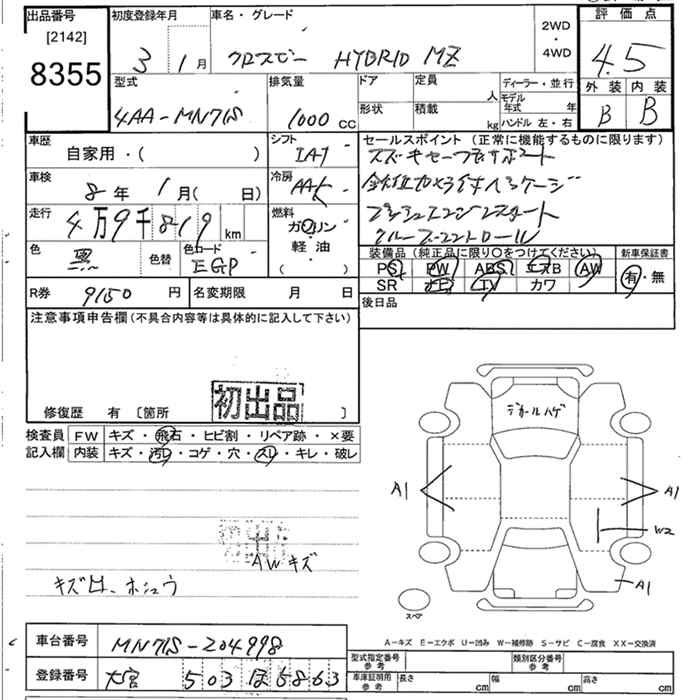 出品番号 初度登録年月 車名・グレード 2WD・4WD 評価点
[2142]
8355
3 1月 クロスビー HYBRID MZ 4.5
型式 排気量 ドア 定員 人 ディーラー・並行 外装 内装
4AA-MN71S 1000 CC 形状 積載 kg モデル年式 年 ハンドル 左・右 B B
車歴 シフト セールスポイント (正常に機能するものに限ります)
自家用・( ) IAT
スズキセーフティサポート
車検 8年 1月( 日) 冷房 AAC
全方位カメラ付パッケージ
走行 4万9千819 km 燃料 ガソリン 軽油 ( )
プッシュエンジンスタート
クルーズコントロール
色 黒 色替 色コード EGP
装備品 (純正品に限り○をつけてください) 新車保証書
PS PW ABS エアB AW 有・無
SR ナビ TV カワ
R券 9150 円 名変期限 月 日 後日品
注意事項申告欄 (不具合内容等は具体的に記入して下さい)
初出品
修復歴 有 〔箇所 〕
検査員 FW キズ・飛石・ヒビ割・リペア跡・×要
記入欄 内装 キズ・汚レ・コゲ・穴・スレ・キレ・破レ
デカールハゲ
A1 A1
W2
初出
AWキズ
A1
キズ ホシュウ
スペア
A-キズ E-エクボ U-凹み W-補修跡 S-サビ C-腐食 XX-交換済
車台番号 MN71S-204998
型式指定番号 参考 類別区分番号 参考
登録番号 大宮 503 ほ 5863
車庫証明用 参考 長さ cm 幅 cm 高さ cm